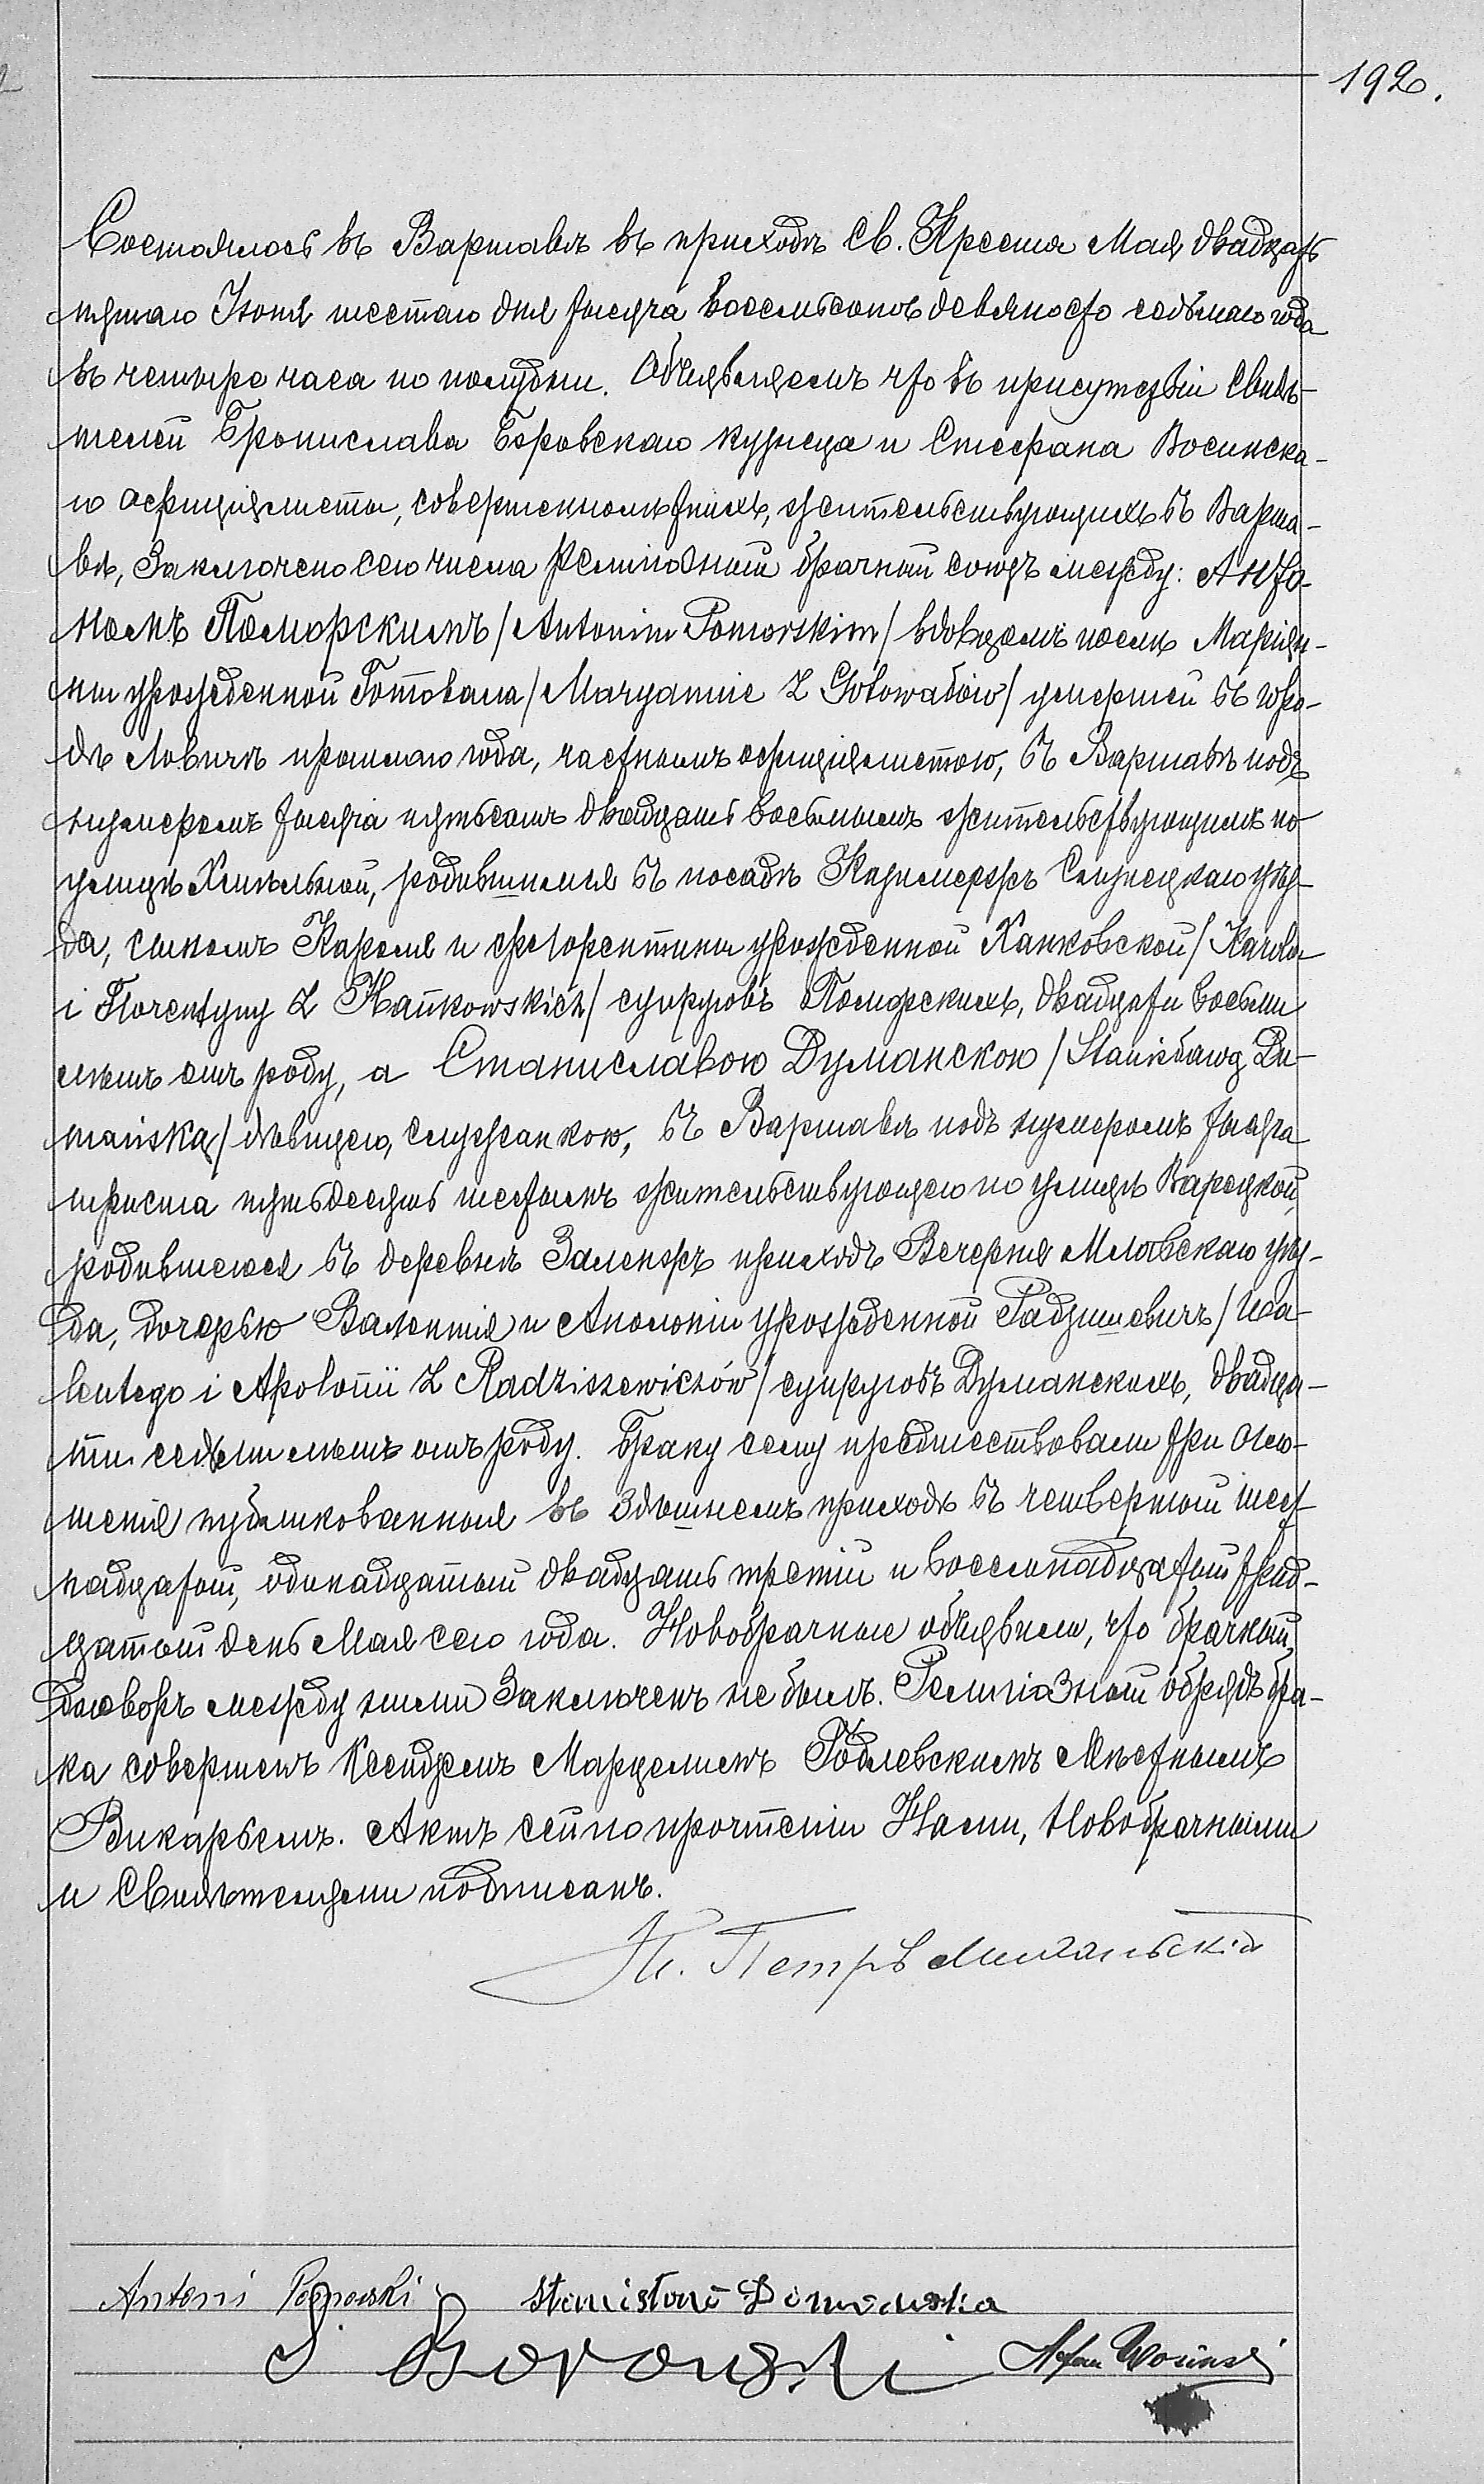 192.
Состоялось въ Варшавѣ въ приходѣ Св. Креста Мая двадцать
пятаго Іюня шестаго дня тысяча восемьсотъ девяносто седьмаго года
въ четыре часа по полудни. Объявляемъ что въ присутствіи свидѣ-
телей Бронислава Боровскаго кузнеца и Стефана Восинска-
го оффиціялиста, совершеннолѣтнихъ, жительствующихъ въ Варша-
вѣ, Заключенъ сего числа Религіозный брачный союзъ между: Анто-
номъ Поморскимъ /Antonim Pomorskim/ вдовцомъ послѣ Маріян-
ны урожденной Готовала /Maryannie z Gotowałów/ умершей въ горо-
дѣ Ловичѣ прошлаго года, частнымъ оффиціялистою, въ Варшавѣ подъ
нумеромъ тысяча пятьсотъ двадцать восьмымъ жительствующимъ по
улицѣ Хмѣльной, родившимся въ посадѣ Казимержъ Слупецкаго уѣз-
да, сыномъ Кароля и Флорентины урожденной Ханковской /Karola
i Florentyny z Hańkowskich/ супруговъ Поморскихъ, двадцати восьми
лѣтъ отъ роду, а Станиславою Думанскою /Stanisławą Du-
mańską/ дѣвицею, служанкою, въ Варшавѣ подъ нумеромъ тысяча
триста пятьдесятъ шестымъ жительствующею по улицѣ Варецкой,
родившеюся въ деревнѣ Заленже приходѣ Вечерня Млавскаго уѣз-
да, дочерью Валентія и Аполоніи урожденной Радзишевичъ /Wa-
lentego i Apolonii z Radziszewiczów/ супруговъ Думанскихъ, двадца-
ти седьми лѣтъ отъ роду. Браку сему предшествовали три огло-
шенія публикованныя въ здѣшнемъ приходѣ въ четвертый шест-
надцатый, одинадцатый двадцать третій и восемнадцатый трид-
цатый день Мая сего года. Новобрачные объявили, что брачный
договоръ между ними заключенъ не былъ. Религіозный обрядъ бра-
ка совершенъ Ксендзомъ Марцелимъ Годлевскимъ Мѣстнымъ
Викарьемъ. Актъ сей по прочтеніи Нами, Новобрачными
и Свидѣтелями подписанъ.
Кс. Петръ
Antoni Pomorski Stanisława Dumańska
Borowski Stefan Wosiński